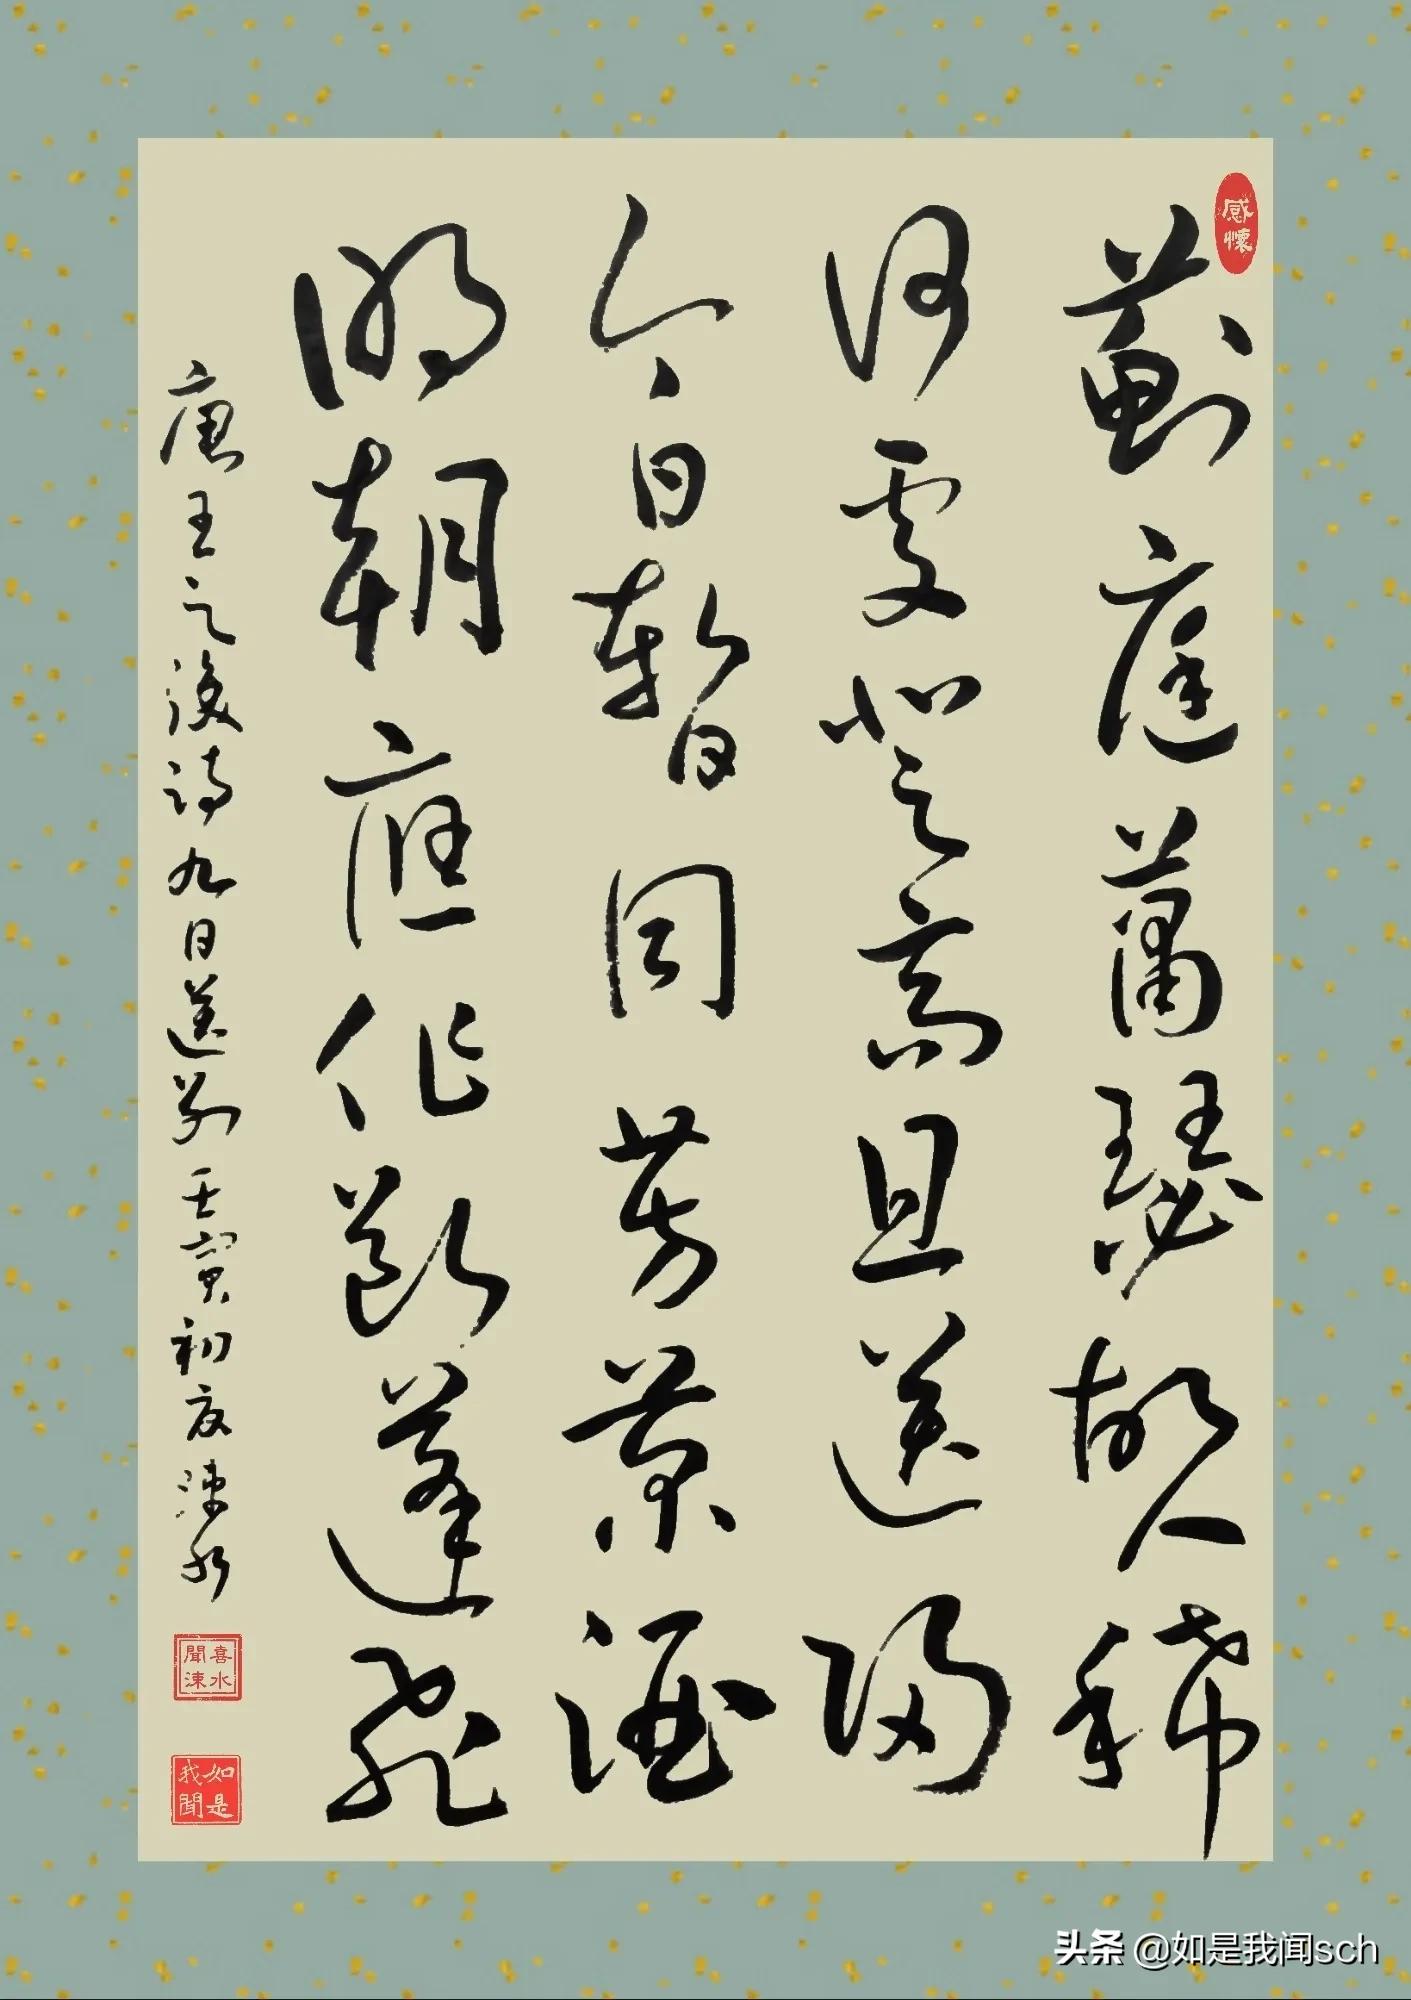 感懷
薊庭蕭瑟故人稀
何處登高且送歸
今日暫同芳菊酒
明朝應作斷蓬飛
唐王之渙詩九日送別壬寅初夏涑水
喜水聞涑
如是我聞
头条 @如是我闻sch